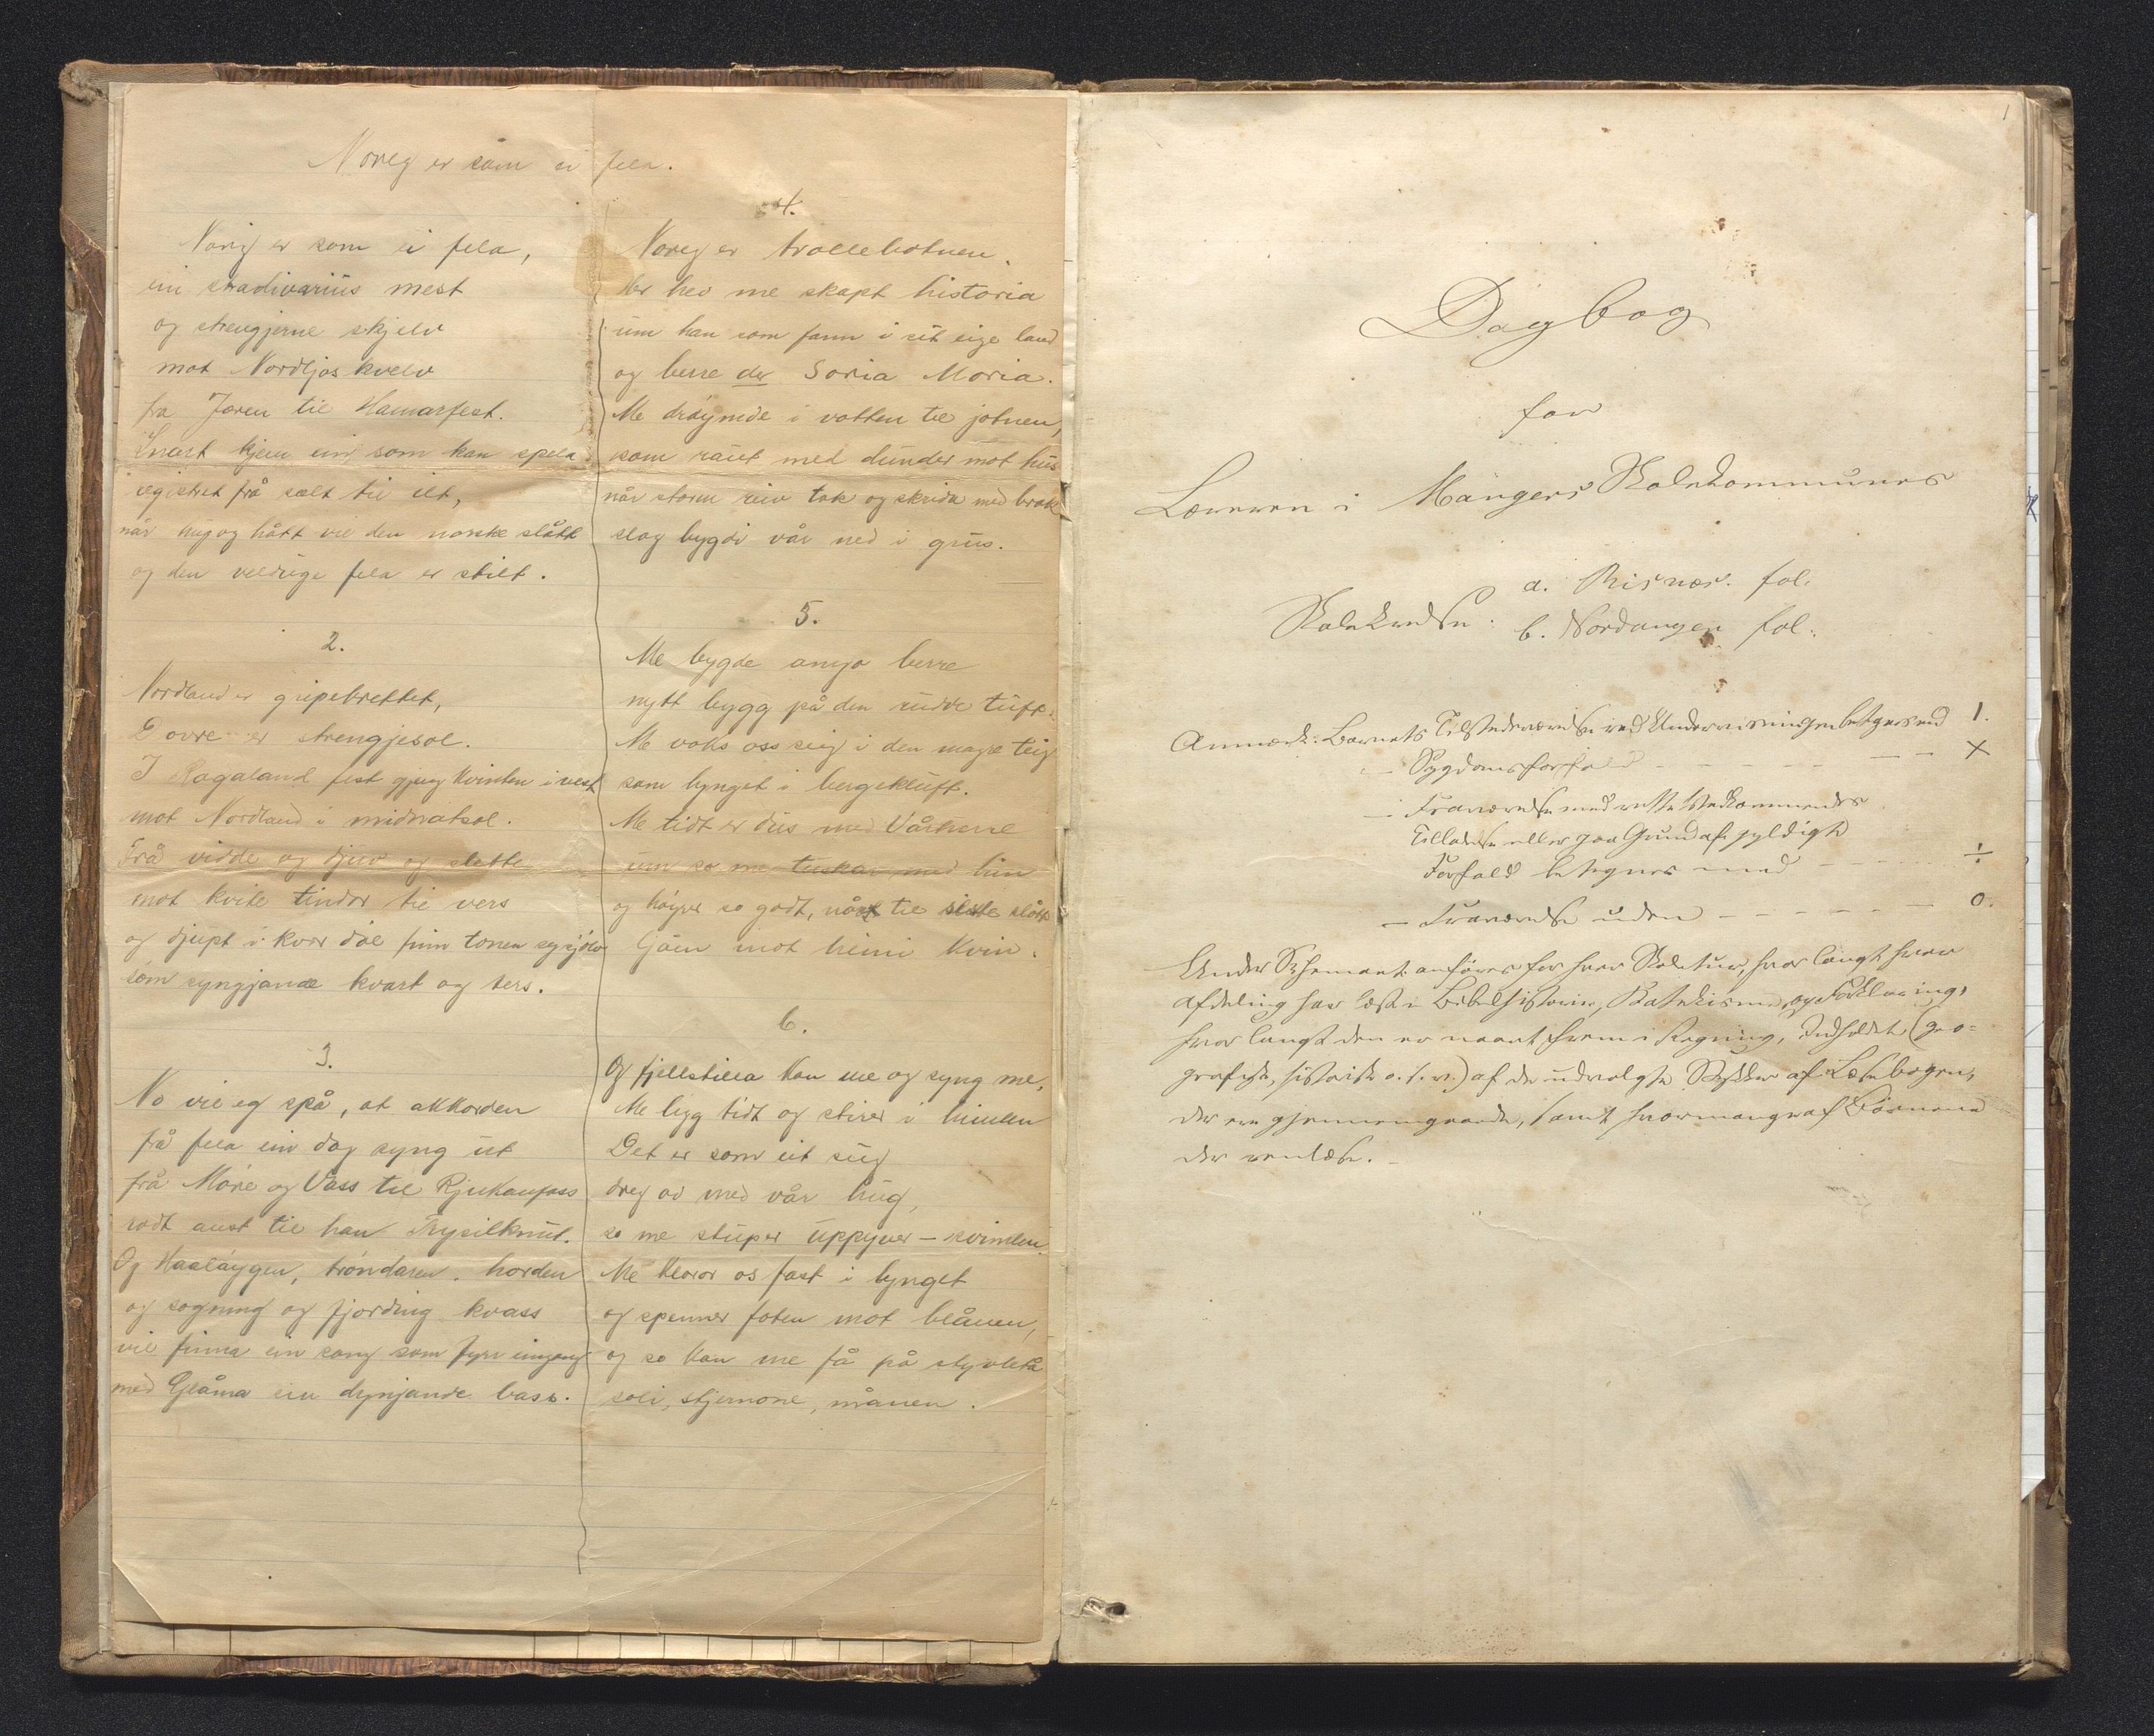 Noreg er som ei fela.
Noreg er som ei fela,
ein stradivarius mest
og strengjerne skjelv
mot Nordljos kvelv
fra Jæren til Hamarfest.
Snart kjem ein som kan spela
registret frå sælt til ilt,
når hug og hått vil den norske slått
og den velduge fela er stilt.
2.
Nordland er gripebrettet,
Dovre er strengjesol.
I Rogaland fest gjeng kvinten i vest
mot Nordland i midnatsol.
Frå vidde og djuv og slette
mot kvite tindar til vers
og djupt i kvar dal finn tonen seg sjølv
som syngjande kvart og ters.
3.
No vil eg spå, at akkorden
frå fela ein dag syng ut
frå Møre og Vass til Rjukanfoss
radt aust til han Trysilknut.
Og Haaløygen, trøndaren, horden
og sogning og fjording kvass
vil finna ein song som fyrr eingong
med Glåma ein dynjande bass.
4.
Noreg er trollebotnen,
her hev me skapt historia
um han som fann i sit eige land
og berre der Soria Moria.
Me drøymde i votten til jotnen,
som raut med dunder mot hus
når storm reiv tak og skrida med brak
slog bygdi vår ned i grus.
5.
Me bygde ongo berre
nytt bygg på den rudde tuft.
Me voks oss seig i den magre teig
som lynget i bergekluft.
Me tidt er dus med Vårherre
um so me tuskar med hin
og høyver so godt, når til siste slått
Gåen mot heimi kvin.
6.
Og fjellstilla kan me og syng me,
Me ligg tidt og stirer i himlen
Det er som eit sug
dreg od med vår hug,
so me stuper uppyver - svimlen.
Me klorer os fast i lynget
og spenner foten mot blånen,
og so kan me få på styvletå
soli, stjernone, månen.
1
Dagbog
for
Læreren i Mangers Skolekommunes
Skolekredse: a. Risnæs. fol.
b. Nordanger fol.
Anmærk: Barnets Tilstedeværelse ved Undervisningen betegnes med 1.
— Sygdomsforfald - - - - - — X
— Fraværelse med rette Vedkommendes
Tilladelse eller paa Grund af gyldigt
Forfald betegnes med - - - - ÷
— Fraværelse uden - - - - - - — 0.
Under Schemaet anföres for hver Skoletur, hvor langt hver
Afdeling har læst i Bibelhistorie, Katekismus og Forklaring,
hvor langt den er naaet frem i Regning, Indholdet (geo-
grafisk, historisk o. s. v.) af de udvalgte Stykker af Læsebogen,
der ere gjennemgaaede, samt hvormange af Börnene
der